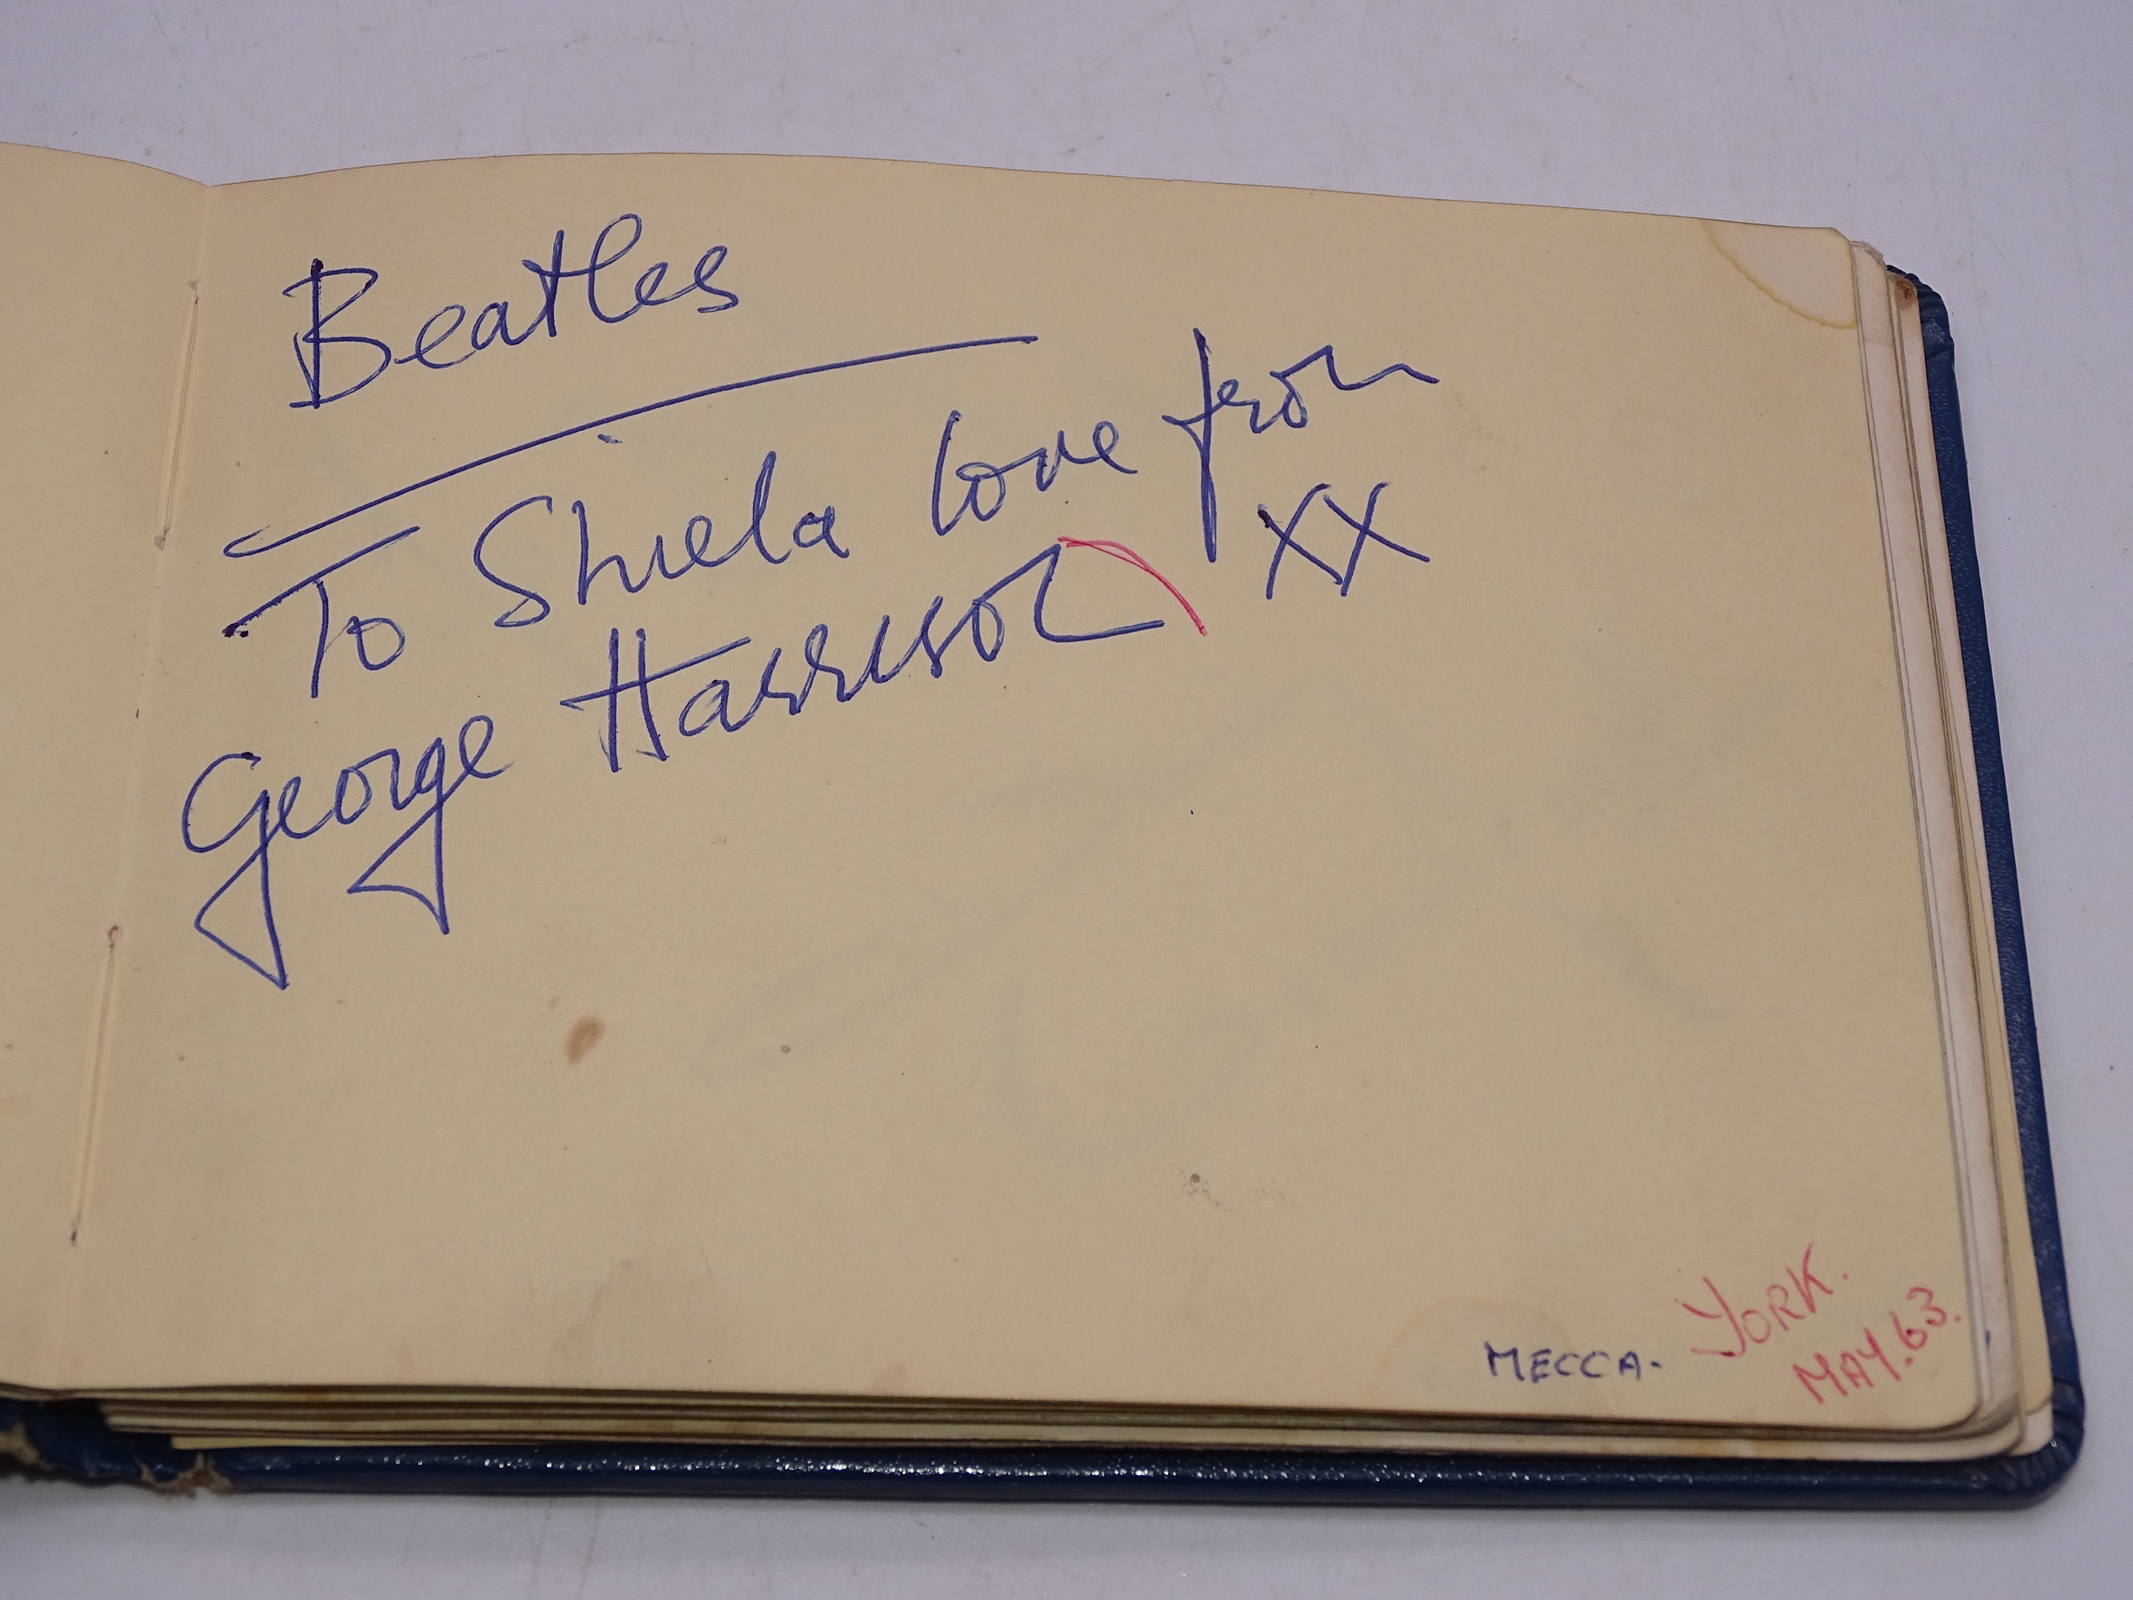 Beatles
To Shiela love from
George Harrison XX
MECCA. YORK.
MAY.63.